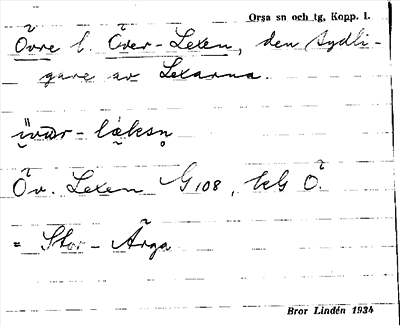 Orsa sn och tg, Kopp. l.
Övre l. Över-Lexen, den sydli-
gare av Lexarna.
üvər-lǟksn̥
Öv. Lexen G108, bG Ö.
= Stor-Ärga
Bror Lindén 1934